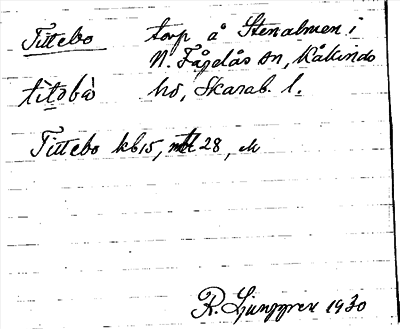 Tittebo torp å Stenalmen i
N. Fågelås sn, Kåkinds
tìtəbò hd, Skarab. l.
Tittebo kb15, 28,
R. Ljunggren 1930